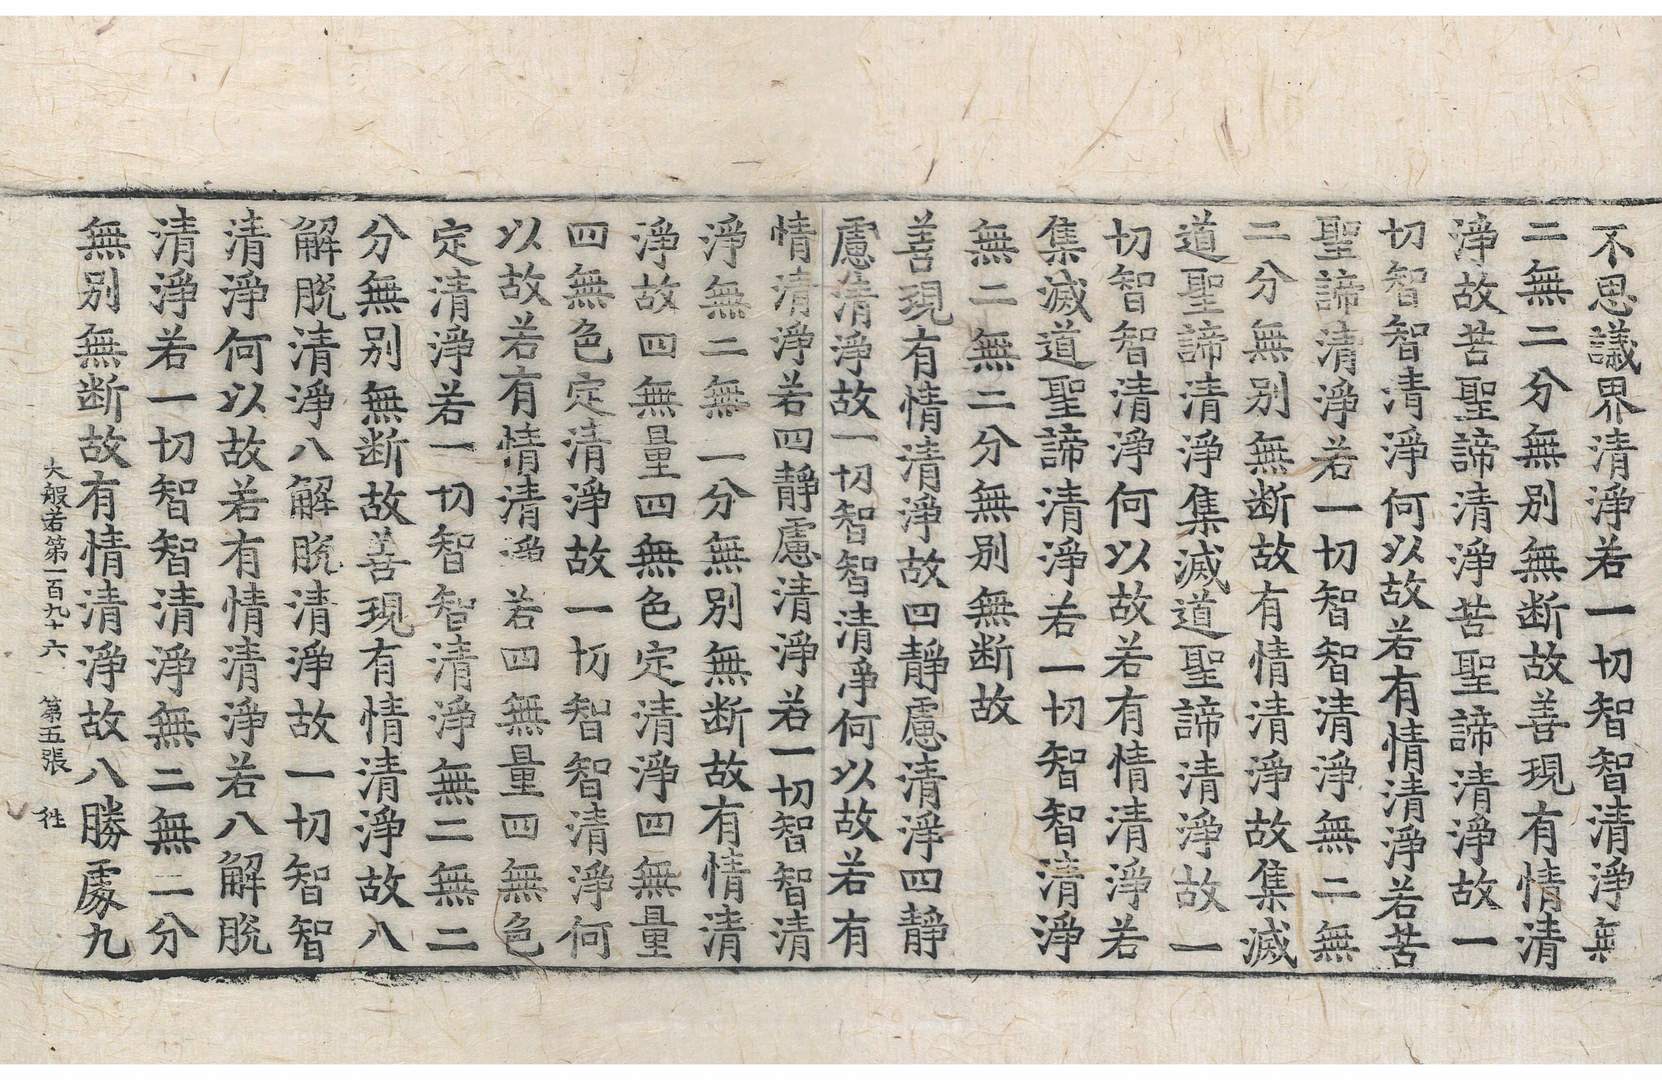 不思議界清淨若一切智智清淨無
二無二分無別無断故善現有情清
淨故苦聖諦清淨苦聖諦清淨故一
切智智清淨何以故若有情清淨若苦
聖諦清淨若一切智智清淨無二無
二分無別無断故有情清淨故集滅
道聖諦清淨集滅道聖諦清淨故一
切智智清淨何以故若有情清淨若
集滅道聖諦清淨若一切智智清淨
無二無二分無別無断故
善現有情清淨故四靜慮清淨四靜
慮清淨故一切智智清淨何以故若有
情清淨若四靜慮清淨若一切智智清
淨無二無二分無別無断故有情清
淨故四無量四無色定清淨四無量
四無色定清淨故一切智智清淨何
以故若有情清淨若四無量四無色
定清淨若一切智智清淨無二無二
分無別無断故善現有情清淨故八
解脫清淨八解脫清淨故一切智智
清淨何以故若有情清淨若八解脫
清淨若一切智智清淨無二無二分
無別無断故有情清淨故八勝處九
大般若第一百九十六 第五張 徃